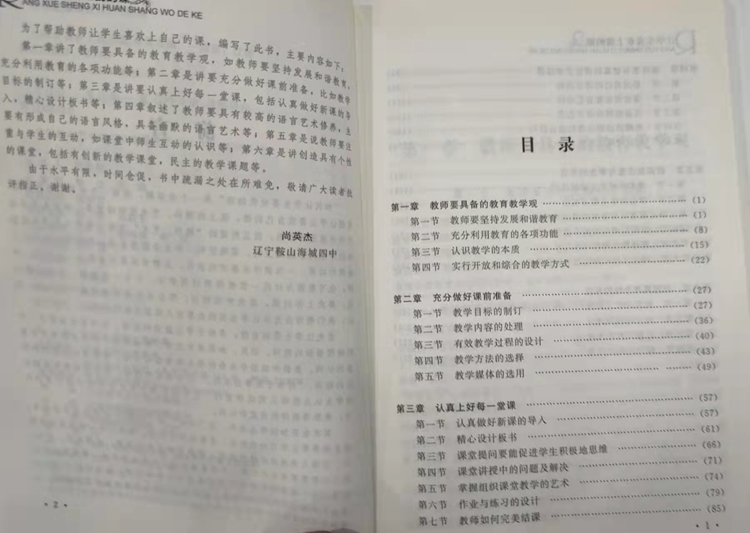 ANG XUE SHENG XI HUAN SHANG WO DE KE
为了帮助教师让学生喜欢上自己的课，编写了此书，主要内容如下：
第一章讲了教师要具备的教育教学观，如教师要坚持发展和谐教育，
充分利用教育的各项功能等；第二章是讲要充分做好课前准备，比如教学
目标的制订等；第三章是讲要认真上好每一堂课，包括认真做好新课的导
入，精心设计板书等；第四章叙述了教师要具有较高的语言艺术修养，主
要有形成自己的语言风格，具备幽默的语言艺术等；第五章是说教师要注
重与学生的互动，如课堂中师生互动的认识等；第六章是讲创造具有个性
的课堂，包括有创新的教学课堂，民主的教学课题等。
由于水平有限，时间仓促，书中疏漏之处在所难免，敬请广大读者批
评指正，谢谢。
尚英杰
辽宁鞍山海城四中
· 2 ·
目 录
第一章 教师要具备的教育教学观 (1)
第一节 教师要坚持发展和谐教育 (1)
第二节 充分利用教育的各项功能 (8)
第三节 认识教学的本质 (15)
第四节 实行开放和综合的教学方式 (22)
第二章 充分做好课前准备 (27)
第一节 教学目标的制订 (27)
第二节 教学内容的处理 (36)
第三节 有效教学过程的设计 (40)
第四节 教学方法的选择 (43)
第五节 教学媒体的选用 (49)
第三章 认真上好每一堂课 (57)
第一节 认真做好新课的导入 (57)
第二节 精心设计板书 (61)
第三节 课堂提问要能促进学生积极地思维 (66)
第四节 课堂讲授中的问题及解决 (71)
第五节 掌握组织课堂教学的艺术 (74)
第六节 作业与练习的设计 (79)
第七节 教师如何完美结课 (85)
· 1 ·